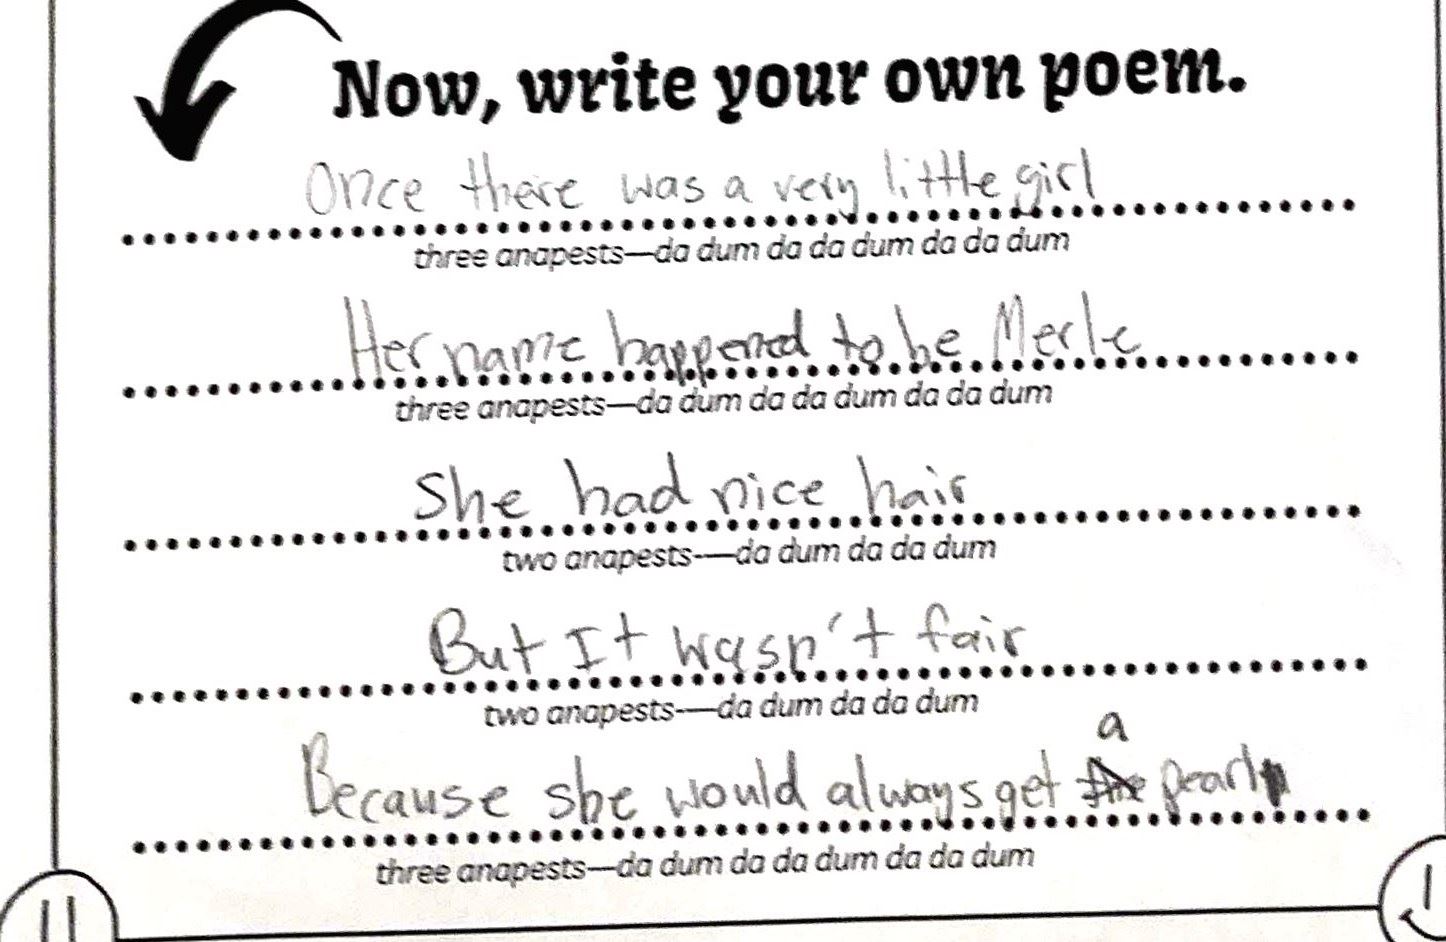 Now, write your own poem.
Once there was a very little girl
three anapests—da dum da da dum da da dum
Her name happened to be Merle
three anapests—da dum da da dum da da dum
She had nice hair
two anapests-—da dum da da dum
But It wasn't fair
two anapests-—da dum da da dum
a
Because she would always get pearl
three anapests—da dum da da dum da da dum